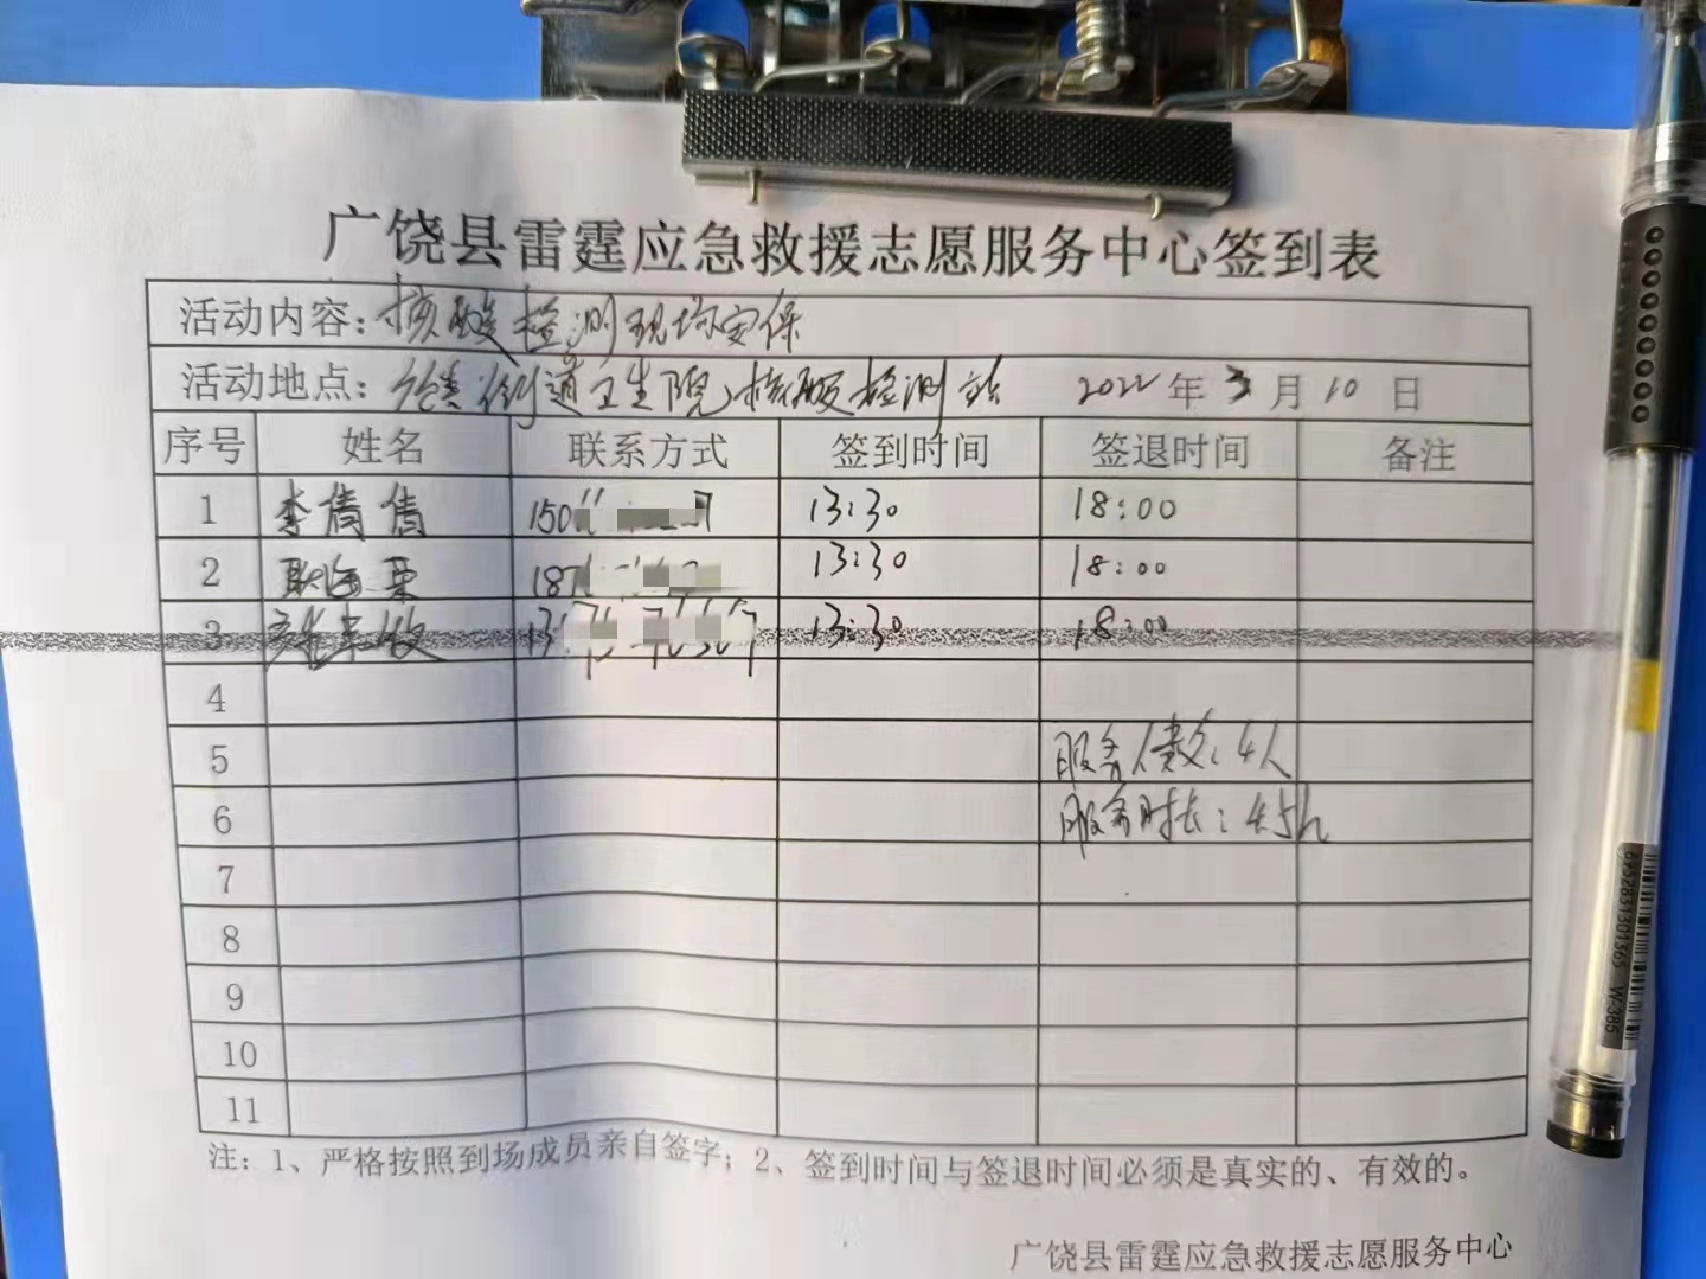 广饶县雷霆应急救援志愿服务中心签到表
活动内容：核酸检测现场安保
活动地点：街道卫生院核酸检测站 2022年3月10日
序号 姓名 联系方式 签到时间 签退时间 备注
1 李倩倩 150 13:30 18:00
2 187 13:30 18:00
3 13:30 18:00
4
5 服务人数：4人
6 服务时长：4.5h
7
8
9
10
11
注：1、严格按照到场成员亲自签字；2、签到时间与签退时间必须是真实的、有效的。
广饶县雷霆应急救援志愿服务中心
6952831301365 W-385